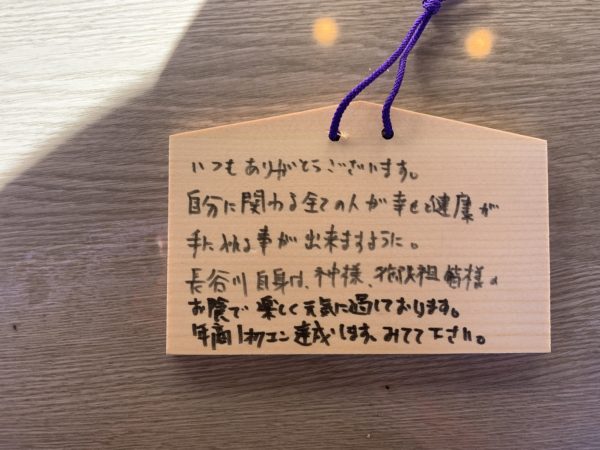 いつもありがとうございます。
自分に関わる全ての人が幸せと健康が
手に入れる事が出来ますように。
長谷川自身は、神様、御先祖皆様の
お陰で楽しく元気に過しております。
年商1オクエン達成します、みてて下さい。